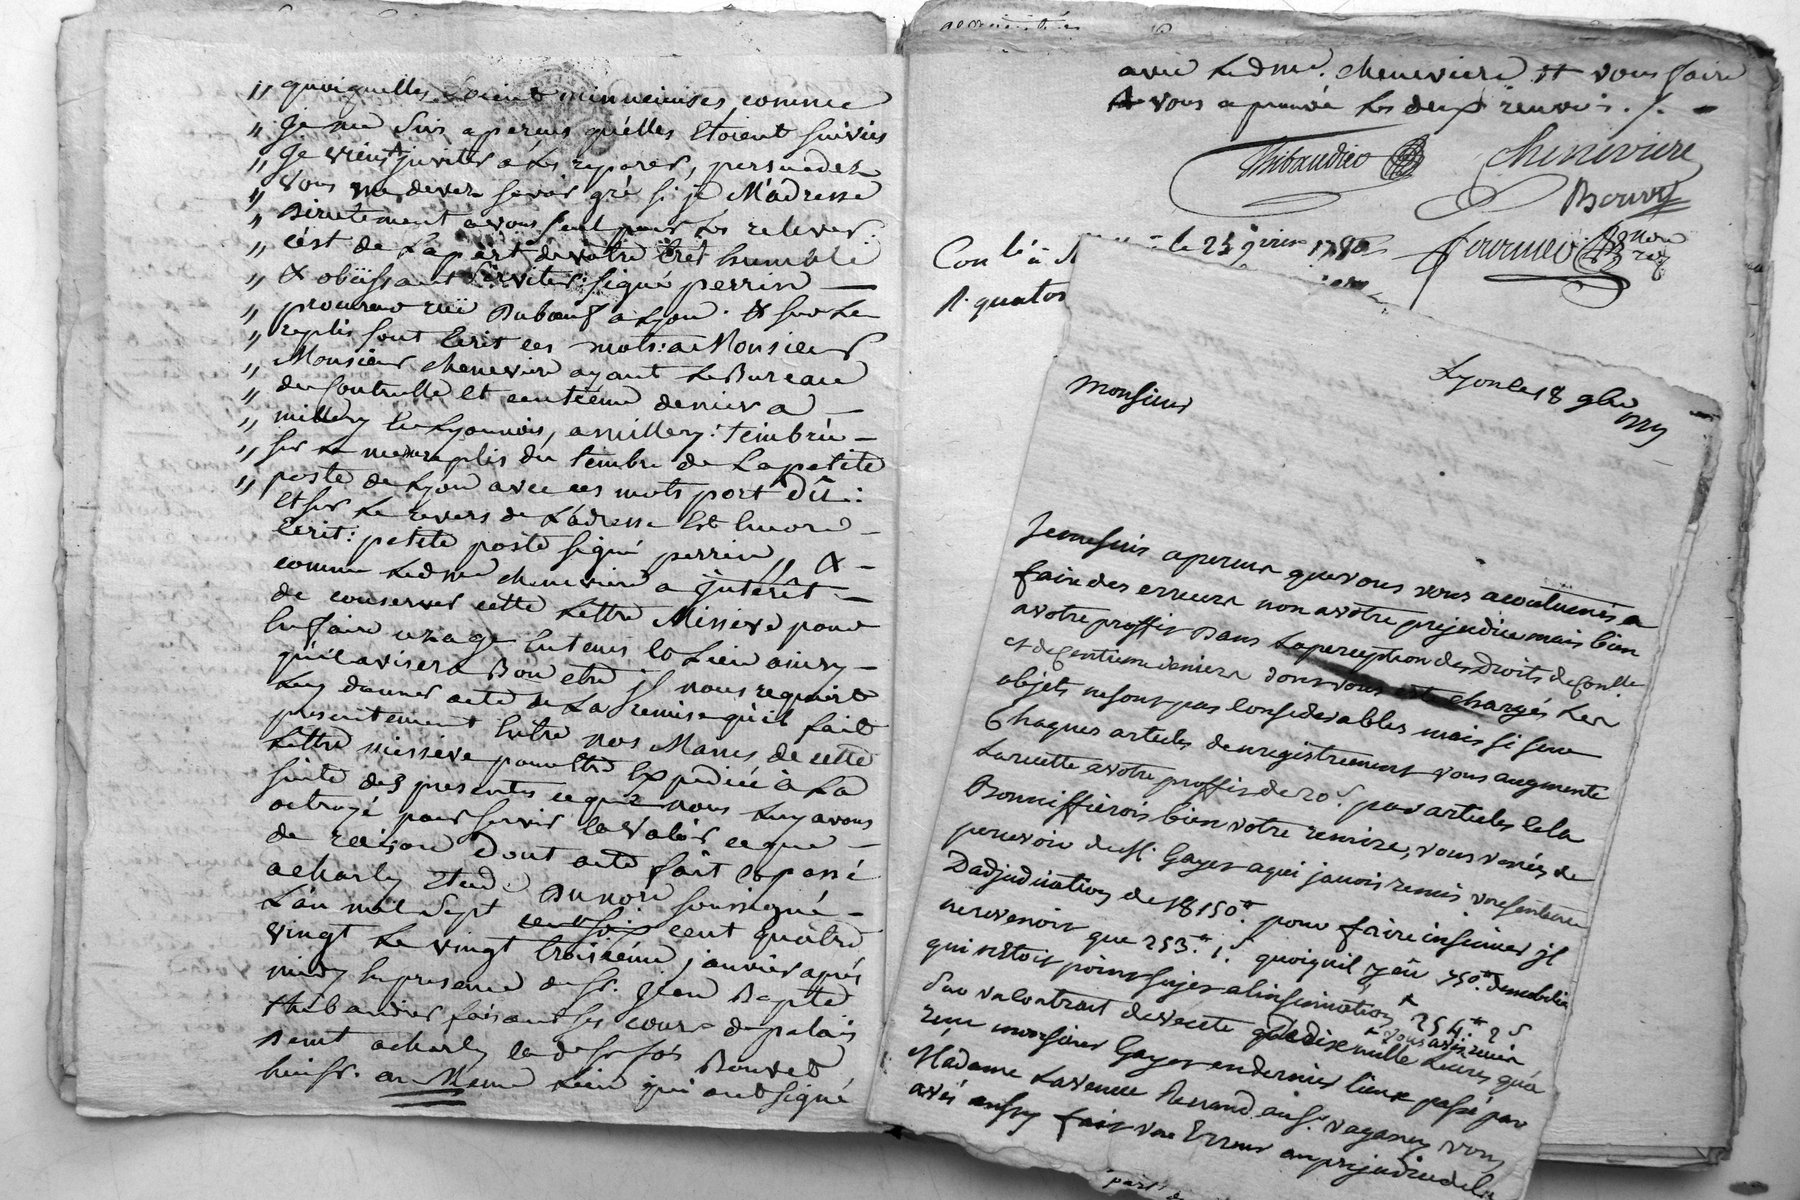 quoiquelles soient minucieuses comme
" Je me suis apercus qu'elles etoient suivies
" Je viens juviter a les reparer, persuadez
" vous me devez savoir gré si je M'adresse
" Directement a vous seul pour les relever.
" c'ést de La part de votre tres humble
" & obéissant serviteur: signé perrin —
" procureur rüe Duboeuf a Lyon. & sur Le
" replis sont Ecrit ces mots: a Monsieur
" Monsieur chenevier ayant Le Bureau
" du Controlle et centiéme denier a —
" millery En Lyonnois, a millery: timbrée —
" sur Le meme replis du timbre de La petite
" poste de Lyon avec ces mots port Dû:
Et sur Le revers de L'adresse Est Encore —
Ecrit: petite poste signé perrin,, & —
comme Ledme cheneviere a jnterêt —
de conserver cette Lettre Missive pour
En faire uzage En tems & Lieu ainsy —
qu'il avisera Bon etre jl nous requiert
Luy donner acte de La remise qu'il fait
presentement Entre nos Mains de cette
Lettre missive pour Etre Expediée à La
suite des presentes ce que nous Luy avons
octroyé pour servir & valoir ce que —
de raison Dont acte fait & passé
a charly Etude Du nore soussigné —
L'an mil sept cent quatre
vingt Le vingt troisiéme janvier aprés
midy En presence de sr. Jean Bapte
thibaudier faisant ses cours de palais
Demt a charly & de sr
Bouvet
huissr. au Meme Lieu qui ont signé
avec Ledme. cheneviere Et vous faire
vous aprouvé Les deux renvois. /. —
Thibaudier
Cheneviere
Bouvet
Fournier
nore
Con lé à
le 25 jvier 1780
R. quator
Lyon le 18 9bre
1779
Monsieur
Je me suis aperceu que vous vous acoutumés a
faire des erreurs non a votre prejudice mais bien
a votre proffit Dans La perception des Droits de Conlle
et de Centieme deniers dont vous est chargés Les
objets ne sont pas Considerables mais si sur
Chaques articles denregistrement vous augmenté
La recette a votre proffit de 20s. par articles cela
Bonniffierois bien votre remize, vous venés de
percevoir de Mr Gayet a qui javois remis une sentence
Dadjudication de 18150tt. pour faire insinuer jl
ne revenoit que 253tt. 1s. quoiquil y eu 750tt. de mobilier
qui n'étoit point sujet a linsinuation 254tt. 2s
Sur un Contrat de vente de dixe mille Livres qua
vous avés recu
remi monsieur Gayet en dernier lieux passé par
Madame La veuve Durand au sr. vaganey vous
avés aussy fait une Erreur au prejudice de la